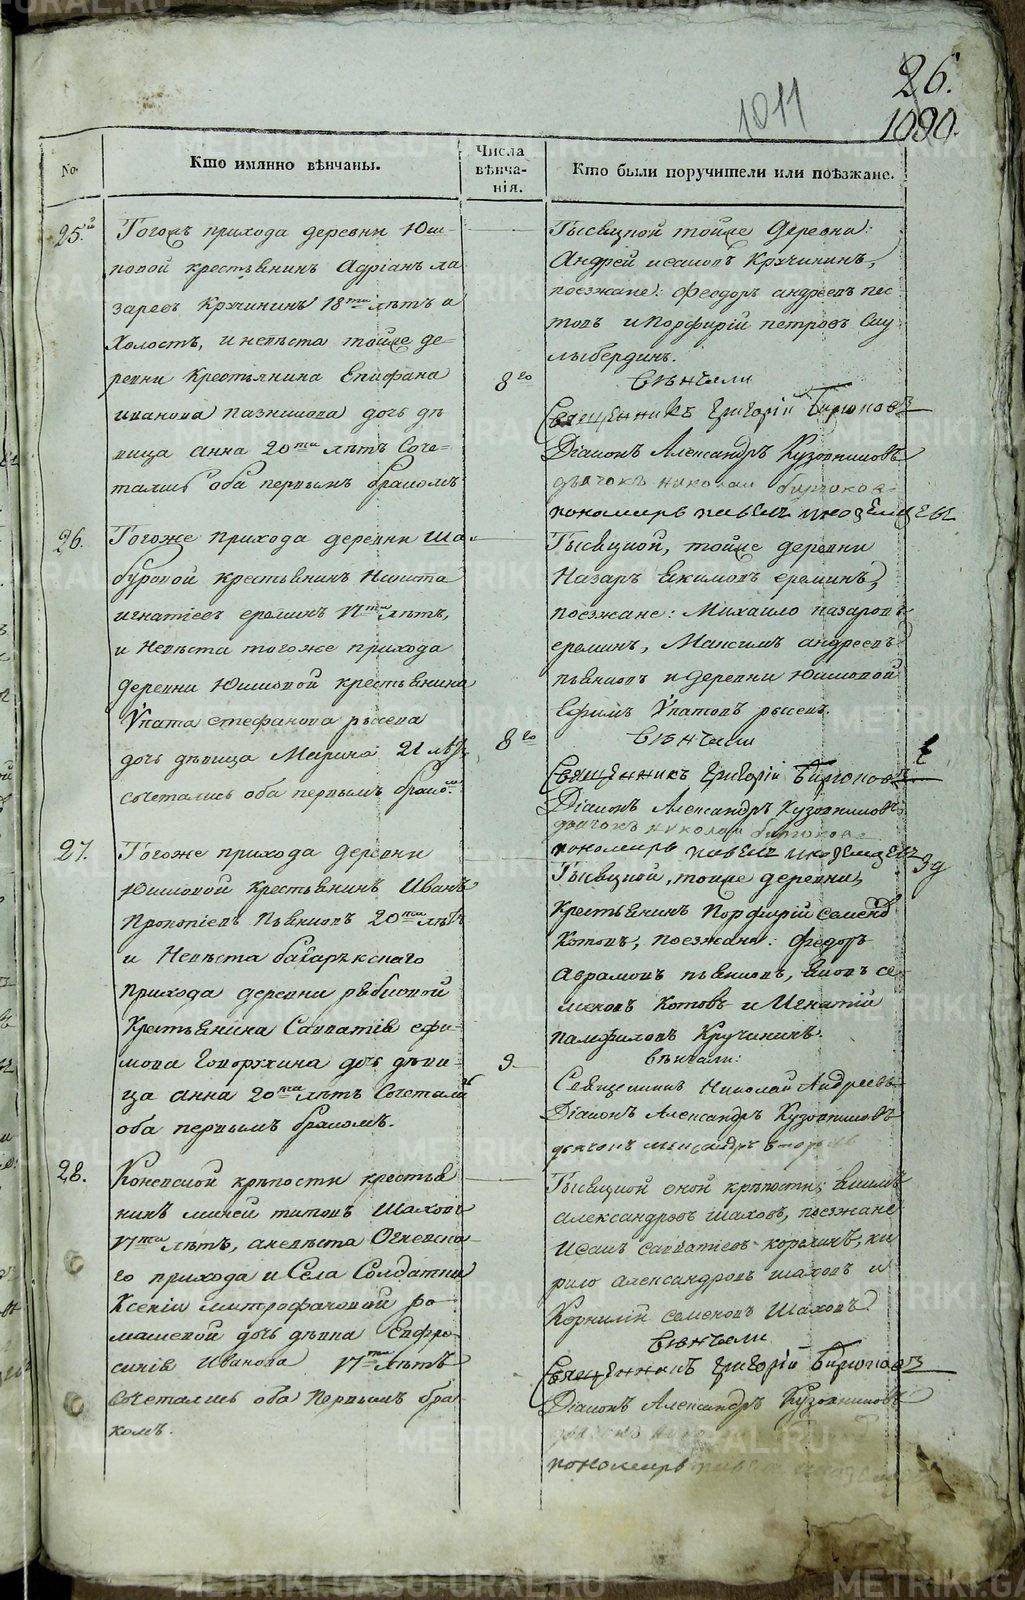 26.
1011
1090.
№
Кто имянно вѣнчаны.
Числа вѣнча-нія.
Кто были поручители или поѣзжане.
25.й
Тогожъ прихода деревни Юш-
ковой крестьянинъ Адріанъ ла
заревъ Кручининъ 18ти лѣтъ
холостъ, и невѣста тойже де-
ревни крестьянина Епифана
иванова дочь дѣ
вица анна 20ти лѣтъ Соче-
тались оба первымъ бракомъ
8го
деревни
Андрей исаковъ Кручининъ,
поезжане: Феодоръ андреевъ пес
товъ и Порфирій петровъ
вѣнчали
Священникъ Григорій Бирюковъ
Діаконъ Александръ Кузовниковъ
дьячокъ николаи бирюковъ
пономарь павелъ
26.
Тогоже прихода деревни
крестьянинъ Никита
игнатіевъ ереминъ 17ти лѣтъ,
и Невѣста тогоже прихода
деревни Юшковой крестьянина
Ипата стефанова рысева
дочь дѣвица Марина 21 лѣтъ,
сочетались оба первымъ брако.
8го
тойже деревни
Назаръ Екимовъ ереминъ,
поезжане: Михаило назаровъ
ереминъ, Максимъ андреевъ
пьянковъ и деревни Юшковой
Ефимъ Ипатовъ рысевъ.
вѣнчали
Священникъ Григорій Бирюковъ
Діаконъ Александръ Кузовниковъ
дьячокъ николаи бирюковъ
пономарь павелъ
27.
Тогоже прихода деревни
Юшковой крестьянинъ Иванъ
Прокопіевъ Пьянковъ 20ти лѣтъ
и Невѣста
прихода деревни рябковой
Крестьянина Савватія ефи-
мова Говорухина дочь дѣви-
ца анна 20ти лѣтъ Сочетались
оба первымъ бракомъ.
9.
тойже деревни,
Крестьянинъ Порфирій семеновъ
Котовъ, поезжане: Федоръ
Аврамовъ пьянковъ, се-
меновъ Котовъ и Игнатій
памфиловъ Кручининъ.
вѣнчали:
Священникъ Николай Андреевъ
Діаконъ Александръ Кузовниковъ
28.
Коневской крѣпости крестья
нинъ титовъ Шаховъ
17ти лѣтъ, а невѣста Огневска-
го прихода и Села Солдатки
Ксеніи митрофановой ро-
машевой дочь дѣвка Евфро-
синія Иванова 17ти лѣтъ
Сочетались оба Первымъ бра-
комъ.
оной крѣпости;
александровъ шаховъ, поезжане
Исакъ савватіевъ ки
рило александровъ шаховъ и
Корнилій семеновъ Шаховъ
вѣнчали
Священникъ Григорій Бирюковъ
Діаконъ Александръ Кузовниковъ
пономарь